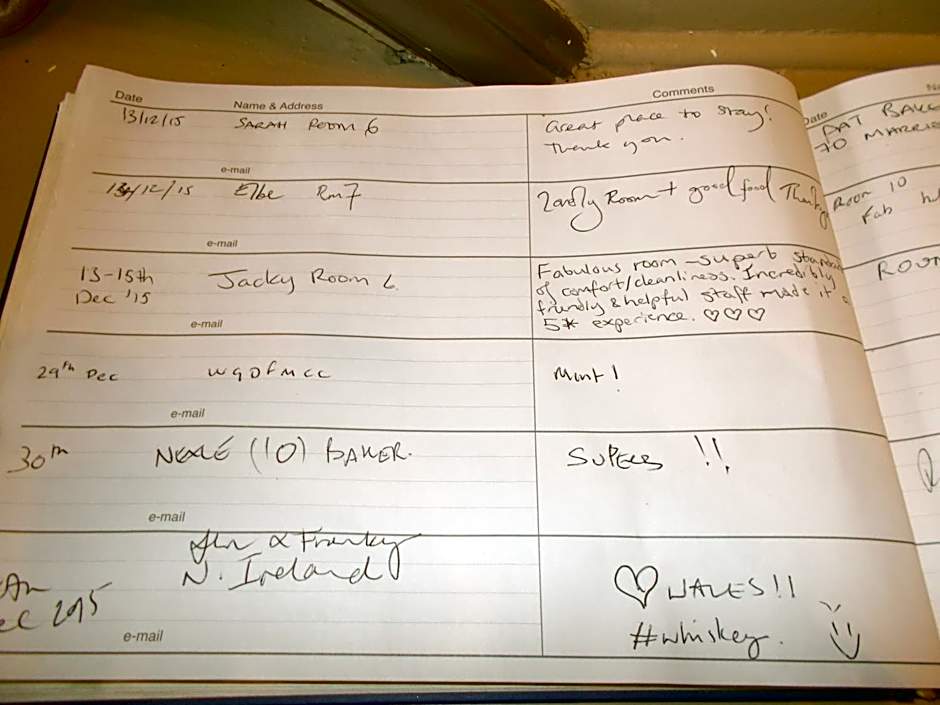 Date Name & Address Comments
13/12/15 SARAH ROOM 6 Great place to stay!
Thank you.
e-mail
13/12/15 Rm 7 Room + good food
e-mail
13-15th Jacky Room 6 Fabulous room - superb
Dec '15 of comfort/cleanliness. Incredibly
friendly & helpful staff made it a
5* experience. ♡♡♡
e-mail
29th Dec Mint!
e-mail
30th (10) BAKER. SUPERB !!
e-mail
& Franky
N. Ireland ♡ WALES!!
2015 #whiskey.
e-mail
Date
PAT
TO
Room 10
Fab
ROOM